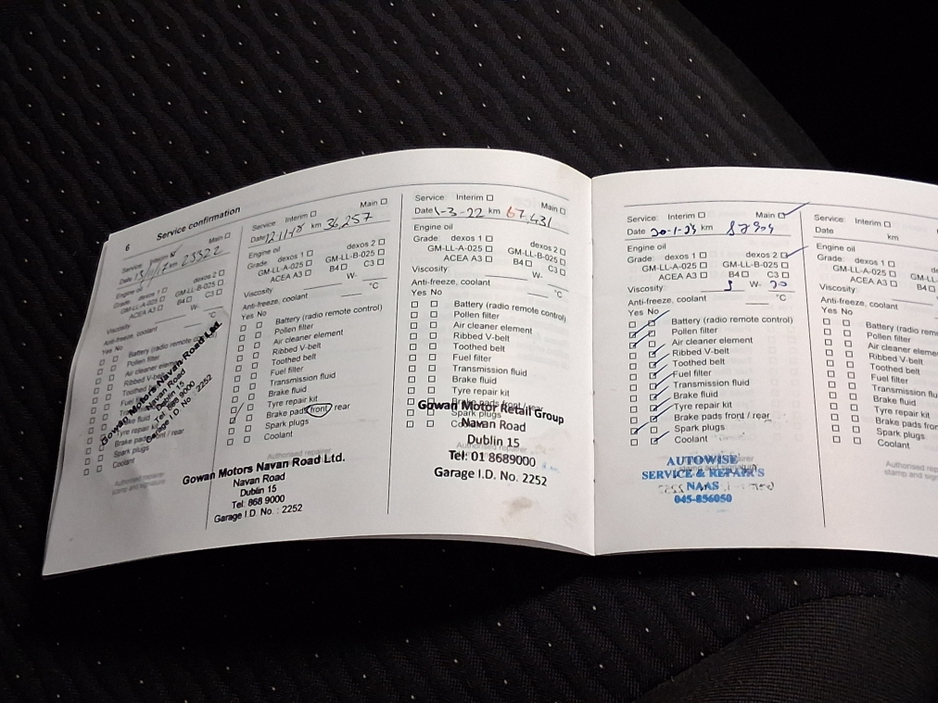 6 Service confirmation
Service: Interim Main
Date 13/11/17 km 23522
Engine oil
Grade: dexos 1 dexos 2
GM-LL-A-025 GM-LL-B-025
ACEA A3 B4 C3
Viscosity W-
Anti-freeze, coolant °C
Yes No
Battery (radio remote
Pollen filter
Air cleaner
Ribbed V-belt
Gowan Motors Navan Road Ltd.
Navan Road
Dublin 15
Tel: 868 9000
Garage I.D. No. 2252
Tyre repair kit
Brake pads front / rear
Spark plugs
Coolant
Authorised repairer
stamp and signature
Service: Interim Main
Date 12-11-18 km 36,257
Engine oil
Grade: dexos 1 dexos 2
GM-LL-A-025 GM-LL-B-025
ACEA A3 B4 C3
Viscosity W-
Anti-freeze, coolant °C
Yes No
Battery (radio remote control)
Pollen filter
Air cleaner element
Ribbed V-belt
Toothed belt
Fuel filter
Transmission fluid
Brake fluid
Tyre repair kit
Brake pads front / rear
Spark plugs
Coolant
Authorised repairer
Gowan Motors Navan Road Ltd.
Navan Road
Dublin 15
Tel: 868 9000
Garage I.D. No. : 2252
Service: Interim Main
Date 1-3-22 km 67,431
Engine oil
Grade: dexos 1 dexos 2
GM-LL-A-025 GM-LL-B-025
ACEA A3 B4 C3
Viscosity W-
Anti-freeze, coolant °C
Yes No
Battery (radio remote control)
Pollen filter
Air cleaner element
Ribbed V-belt
Toothed belt
Fuel filter
Transmission fluid
Brake fluid
Tyre repair kit
Brake pads front / rear
Gowan Motor Retail Group
Spark plugs
Navan Road
Dublin 15
Tel: 01 8689000
Garage I.D. No. 2252
Service: Interim Main
Date 20-1-23 km
Engine oil
Grade: dexos 1 dexos 2
GM-LL-A-025 GM-LL-B-025
ACEA A3 B4 C3
Viscosity W-
Anti-freeze, coolant °C
Yes No
Battery (radio remote control)
Pollen filter
Air cleaner element
Ribbed V-belt
Toothed belt
Fuel filter
Transmission fluid
Brake fluid
Tyre repair kit
Brake pads front / rear
Spark plugs
Coolant
AUTOWISE
SERVICE & REPAIR'S
NAAS
045-856050
Service: Interim
Date km
Engine oil
Grade: dexos 1
GM-LL-A-025
ACEA A3
Viscosity
Anti-freeze, coolant
Yes No
Battery (radio
Pollen filter
Air cleaner
Ribbed V-belt
Toothed belt
Fuel filter
Transmission
Brake fluid
Tyre repair kit
Brake pads
Spark plugs
Coolant
Authorised
stamp and